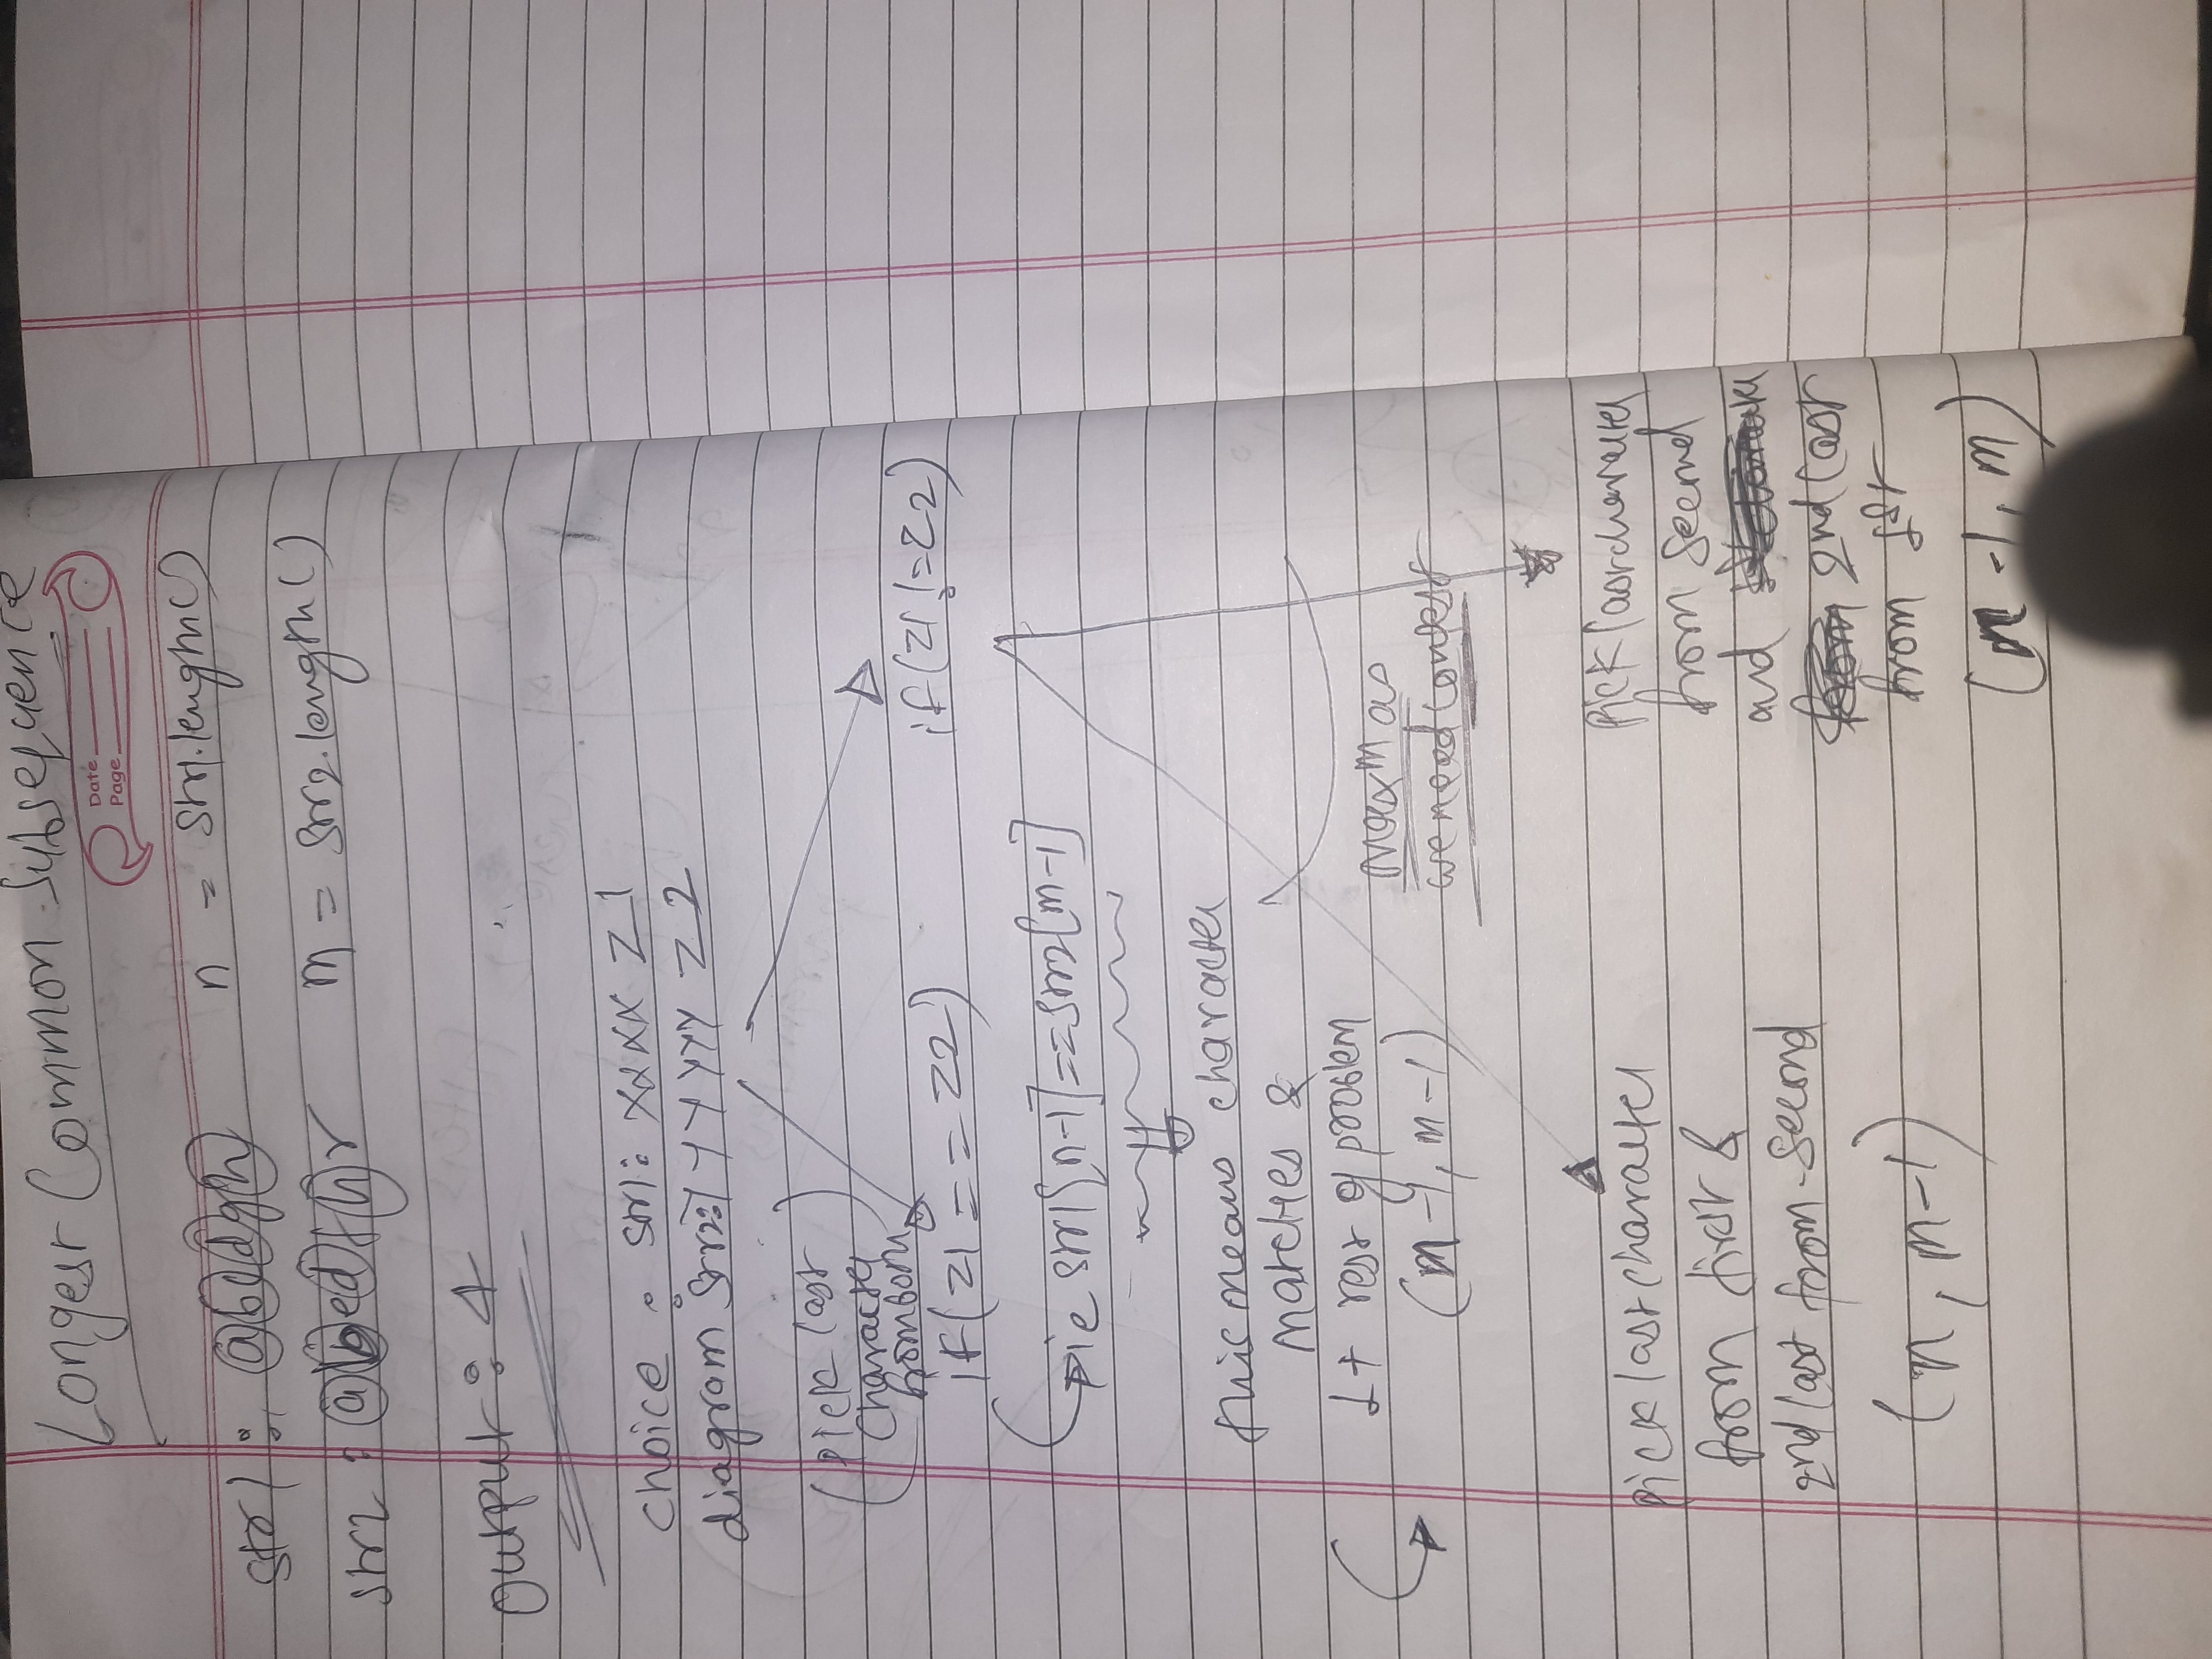 Longest Common Subsequence
Date
Page
str1 : abcdgh n = str1.length()
str2 : abedfhr m = str2.length()
output : 4
choice : str1: XXXX Z1
diagram str2: YYYYYY Z2
(pick last
character
from both)
if(Z1 == Z2)
if(Z1 != Z2)
ie str1[n-1]==str2[m-1]
this means character
matches &
1 + rest of problem
(n-1, m-1)
maxm as
we need longest
pick last character
from first &
2nd last from second
(n, m-1)
Pick last character
from second
and
2nd last
from 1st
(n-1, m)